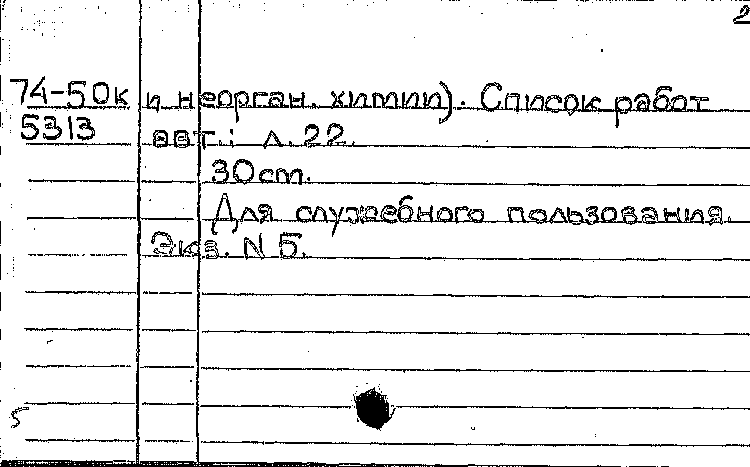 2
74-50к и неорган. химии). Список работ
5313 авт.: л. 22.
30 cm.
Для служебного пользования.
Экз. N 5.
5